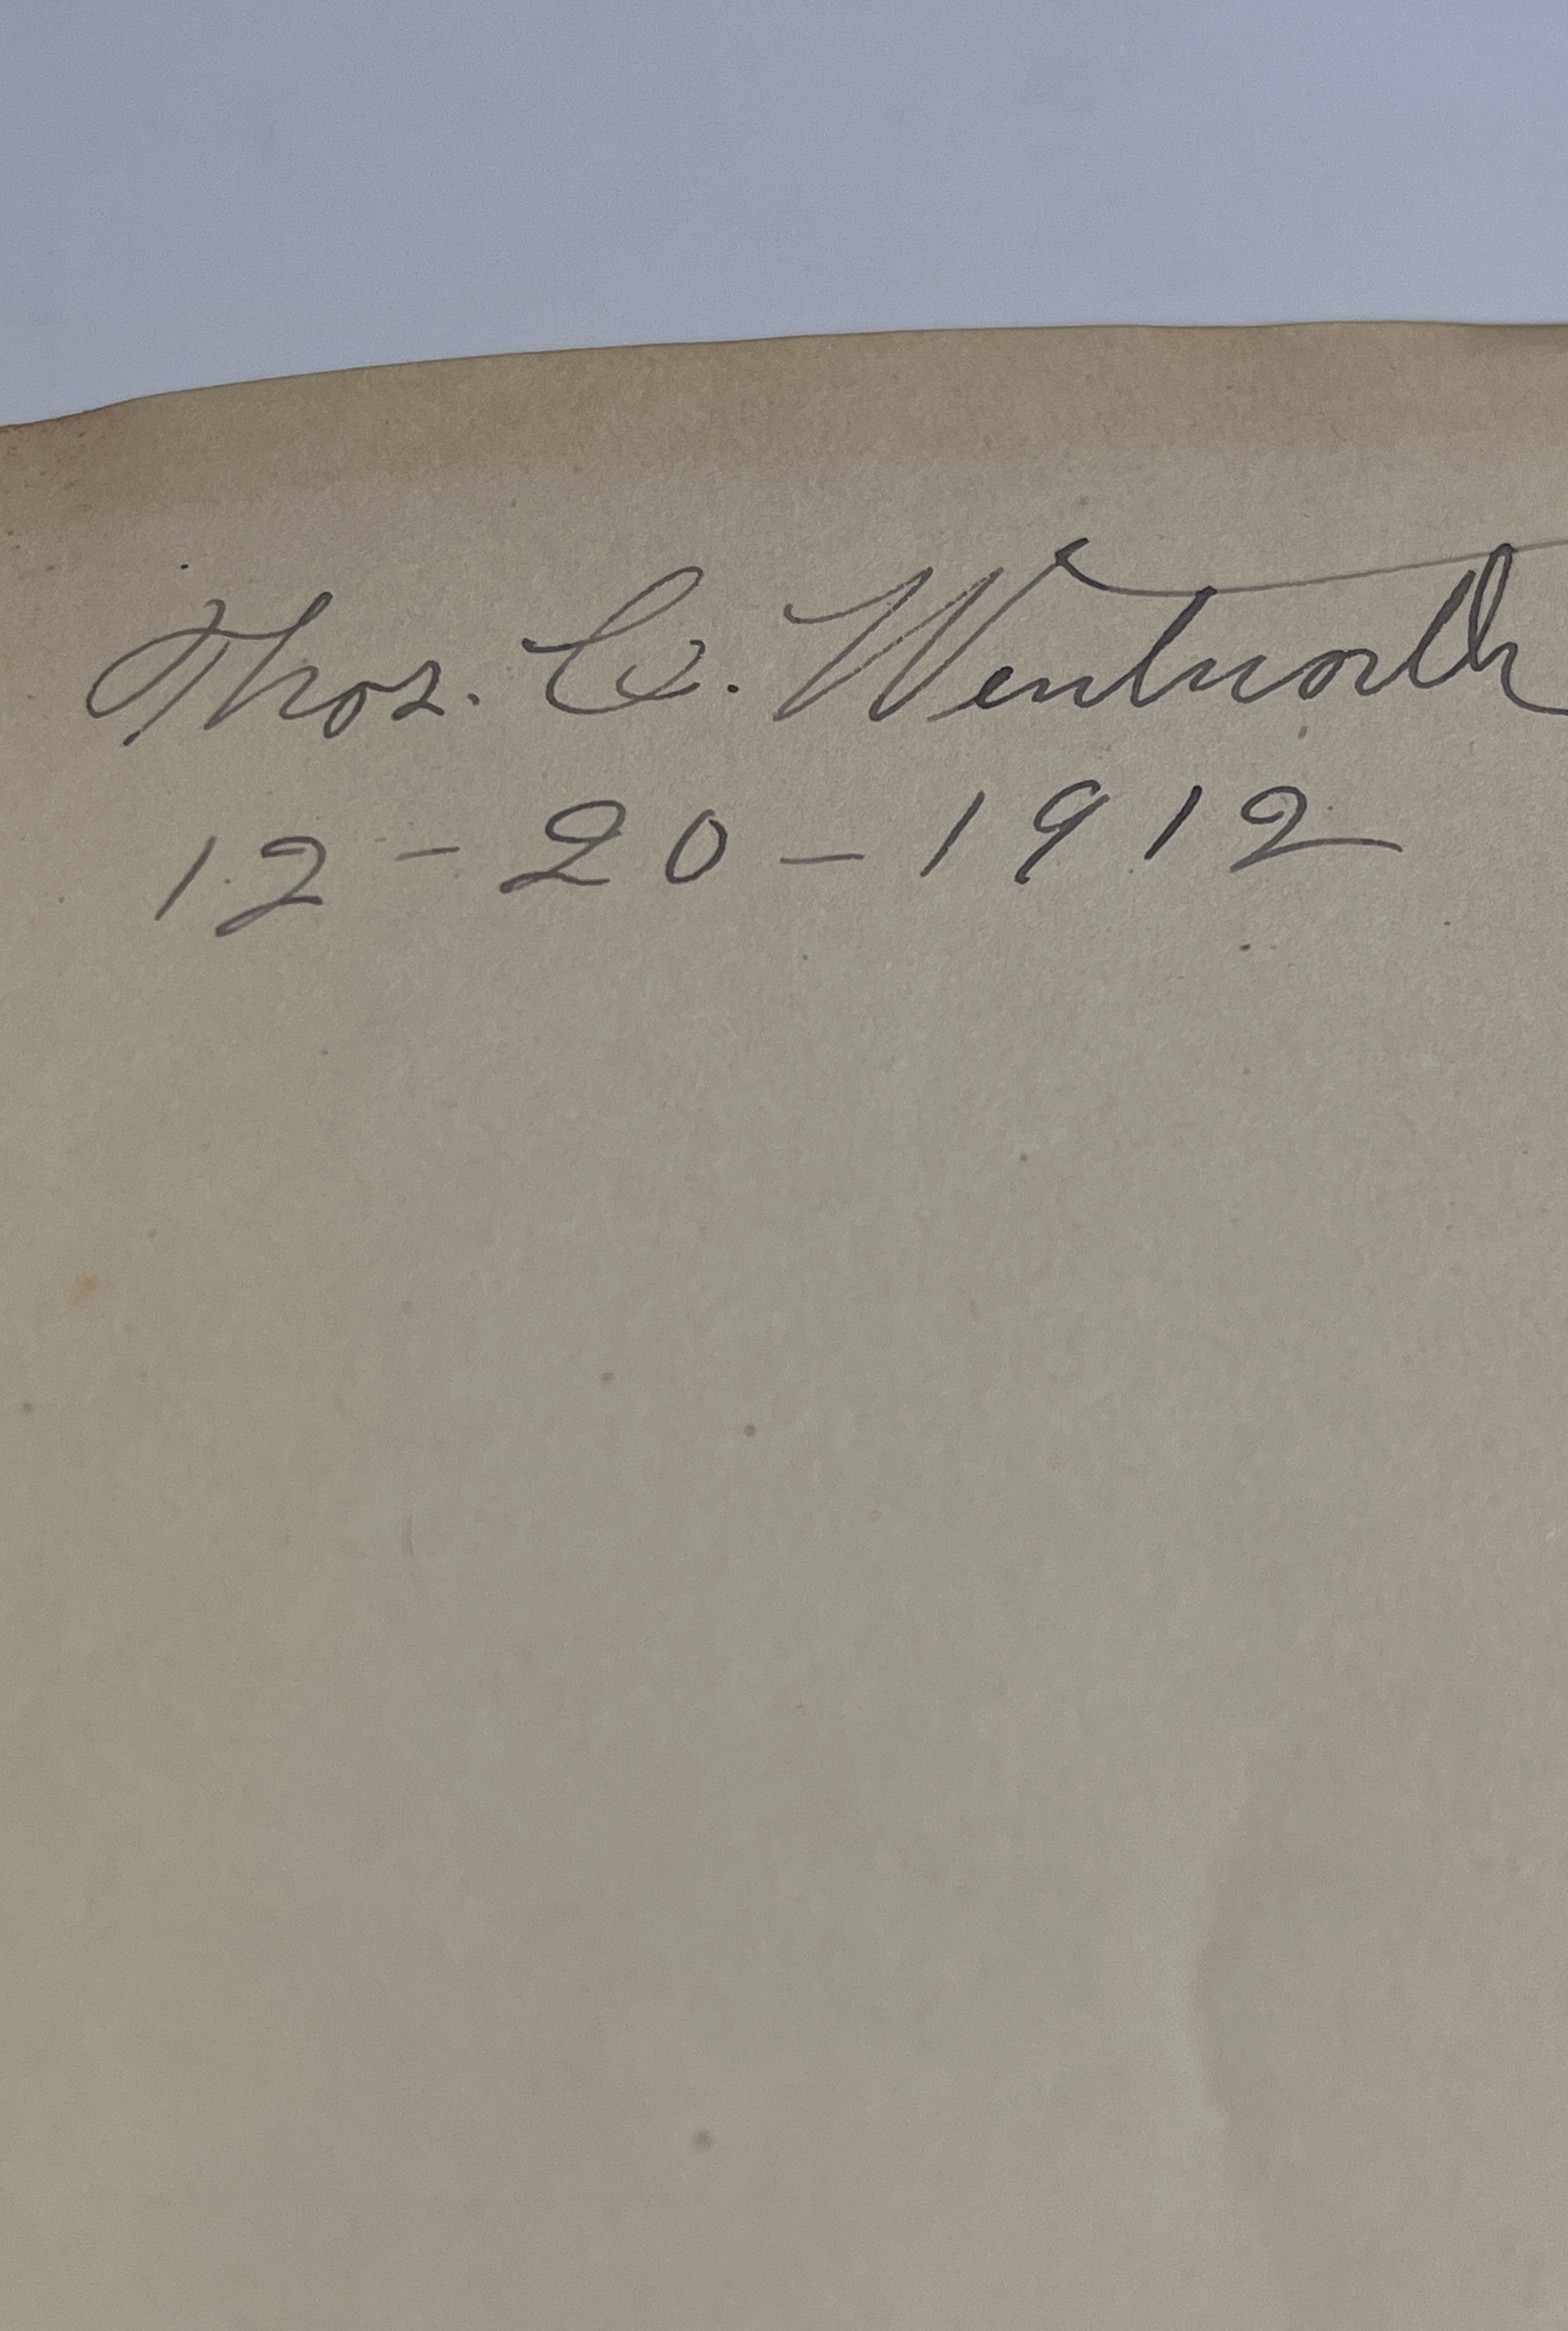 Thos. C. Wentworth
12-20-1912